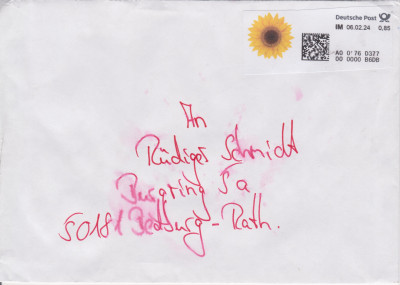 Deutsche Post
IM 06.02.24 0,85
A0 0176 0377
00 0000 B6DB
An
Rüdiger Schmidt
Burgring 5a
50181 Bedburg-Rath.